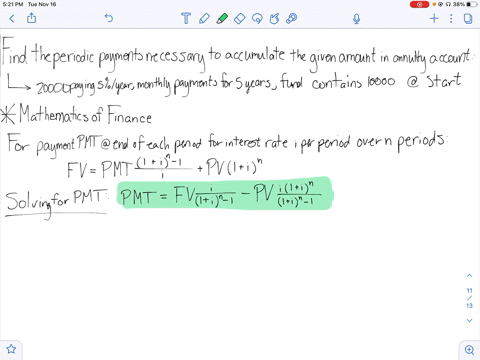 5:21 PM Tue Nov 16
38%
Find the periodic payments necessary to accumulate the given amount in annuity account:
20000 paying 5%/year, monthly payments for 5 years, fund contains 10000 @ start
* Mathematics of Finance
For payment PMT @ end of each period for interest rate i per period over n periods:
FV = PMT ((1+i)^n-1)/i + PV(1+i)^n
Solving for PMT: PMT = FV i/((1+i)^n-1) - PV i(1+i)^n/((1+i)^n-1)
11
/
13